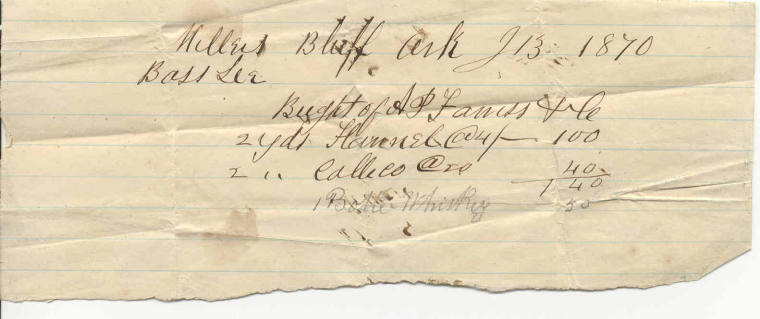 Millers Bluff Ark J 13 1870
Bass Lee
Bught of A P & Co
2 yds Flannel @ 4/– 100
2 " Callico @ 20 40
1 40
1 Botle Whiskey 50